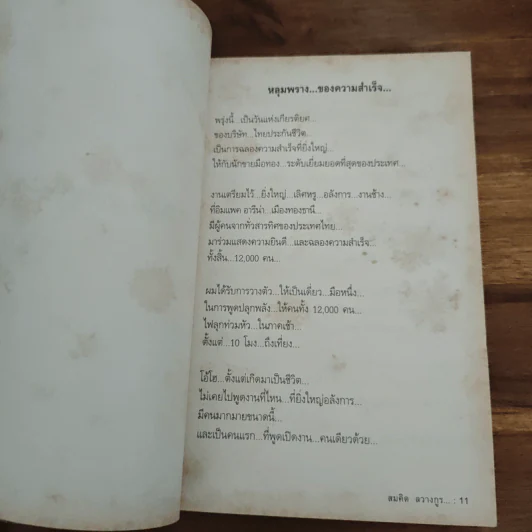 หลุมพราง...ของความสำเร็จ...
พรุ่งนี้...เป็นวันแห่งเกียรติยศ...
ของบริษัท...ไทยประกันชีวิต...
เป็นการฉลองความสำเร็จที่ยิ่งใหญ่...
ให้กับนักขายมือทอง...ระดับเยี่ยมยอดที่สุดของประเทศ...
งานเตรียมไว้...ยิ่งใหญ่...เลิศหรู...อลังการ...งานช้าง...
ที่อิมแพค อารีน่า...เมืองทองธานี...
มีผู้คนจากทั่วสารทิศของประเทศไทย...
มาร่วมแสดงความยินดี...และฉลองความสำเร็จ...
ทั้งสิ้น...12,000 คน...
ผมได้รับการวางตัว...ให้เป็นเดี่ยว...มือหนึ่ง...
ในการพูดปลุกพลัง...ให้คนทั้ง 12,000 คน...
ไฟลุกท่วมหัว...ในภาคเช้า...
ตั้งแต่...10 โมง...ถึงเที่ยง...
โอ้โฮ...ตั้งแต่เกิดมาเป็นชีวิต...
ไม่เคยไปพูดงานที่ไหน...ที่ยิ่งใหญ่อลังการ...
มีคนมากมายขนาดนี้...
และเป็นคนแรก...ที่พูดเปิดงาน...คนเดียวด้วย...
สมคิด ลวางกูร... : 11